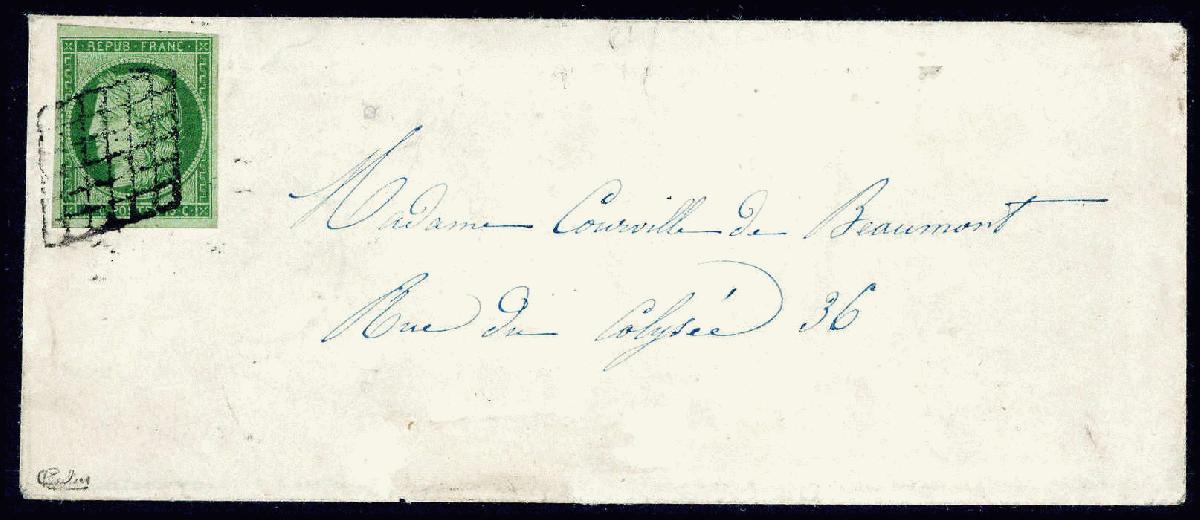 REPUB FRANC
POSTES 15 C
Madame Courville de Beaumont
Rue du Colysée 36